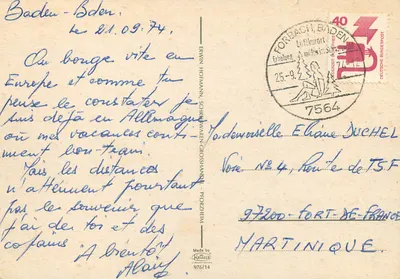 Baden-Bden.
Le 21.09.74.
On bouge vite en
Europe et comme tu
pense le constater je
suis déjà en Allemagne
où mes vacances conti-
nuent bon-train.
Mais les distances
n'atténuent pourtant
pas le souvenir que
j'ai de toi et des
copains.
A bientôt
Alain
ERWIN HERRMANN, PFORZHEIM
Made by
Krüger
40
DEUTSCHE BUNDESPOST
FORBACH, BADEN
Luftkurort
Erholung
25.-9.74.-12
7564
Mademoiselle Eliane DUCHEL
Voie No 4, Route de TSF
97200-FORT-DE-FRANCE
MARTINIQUE.